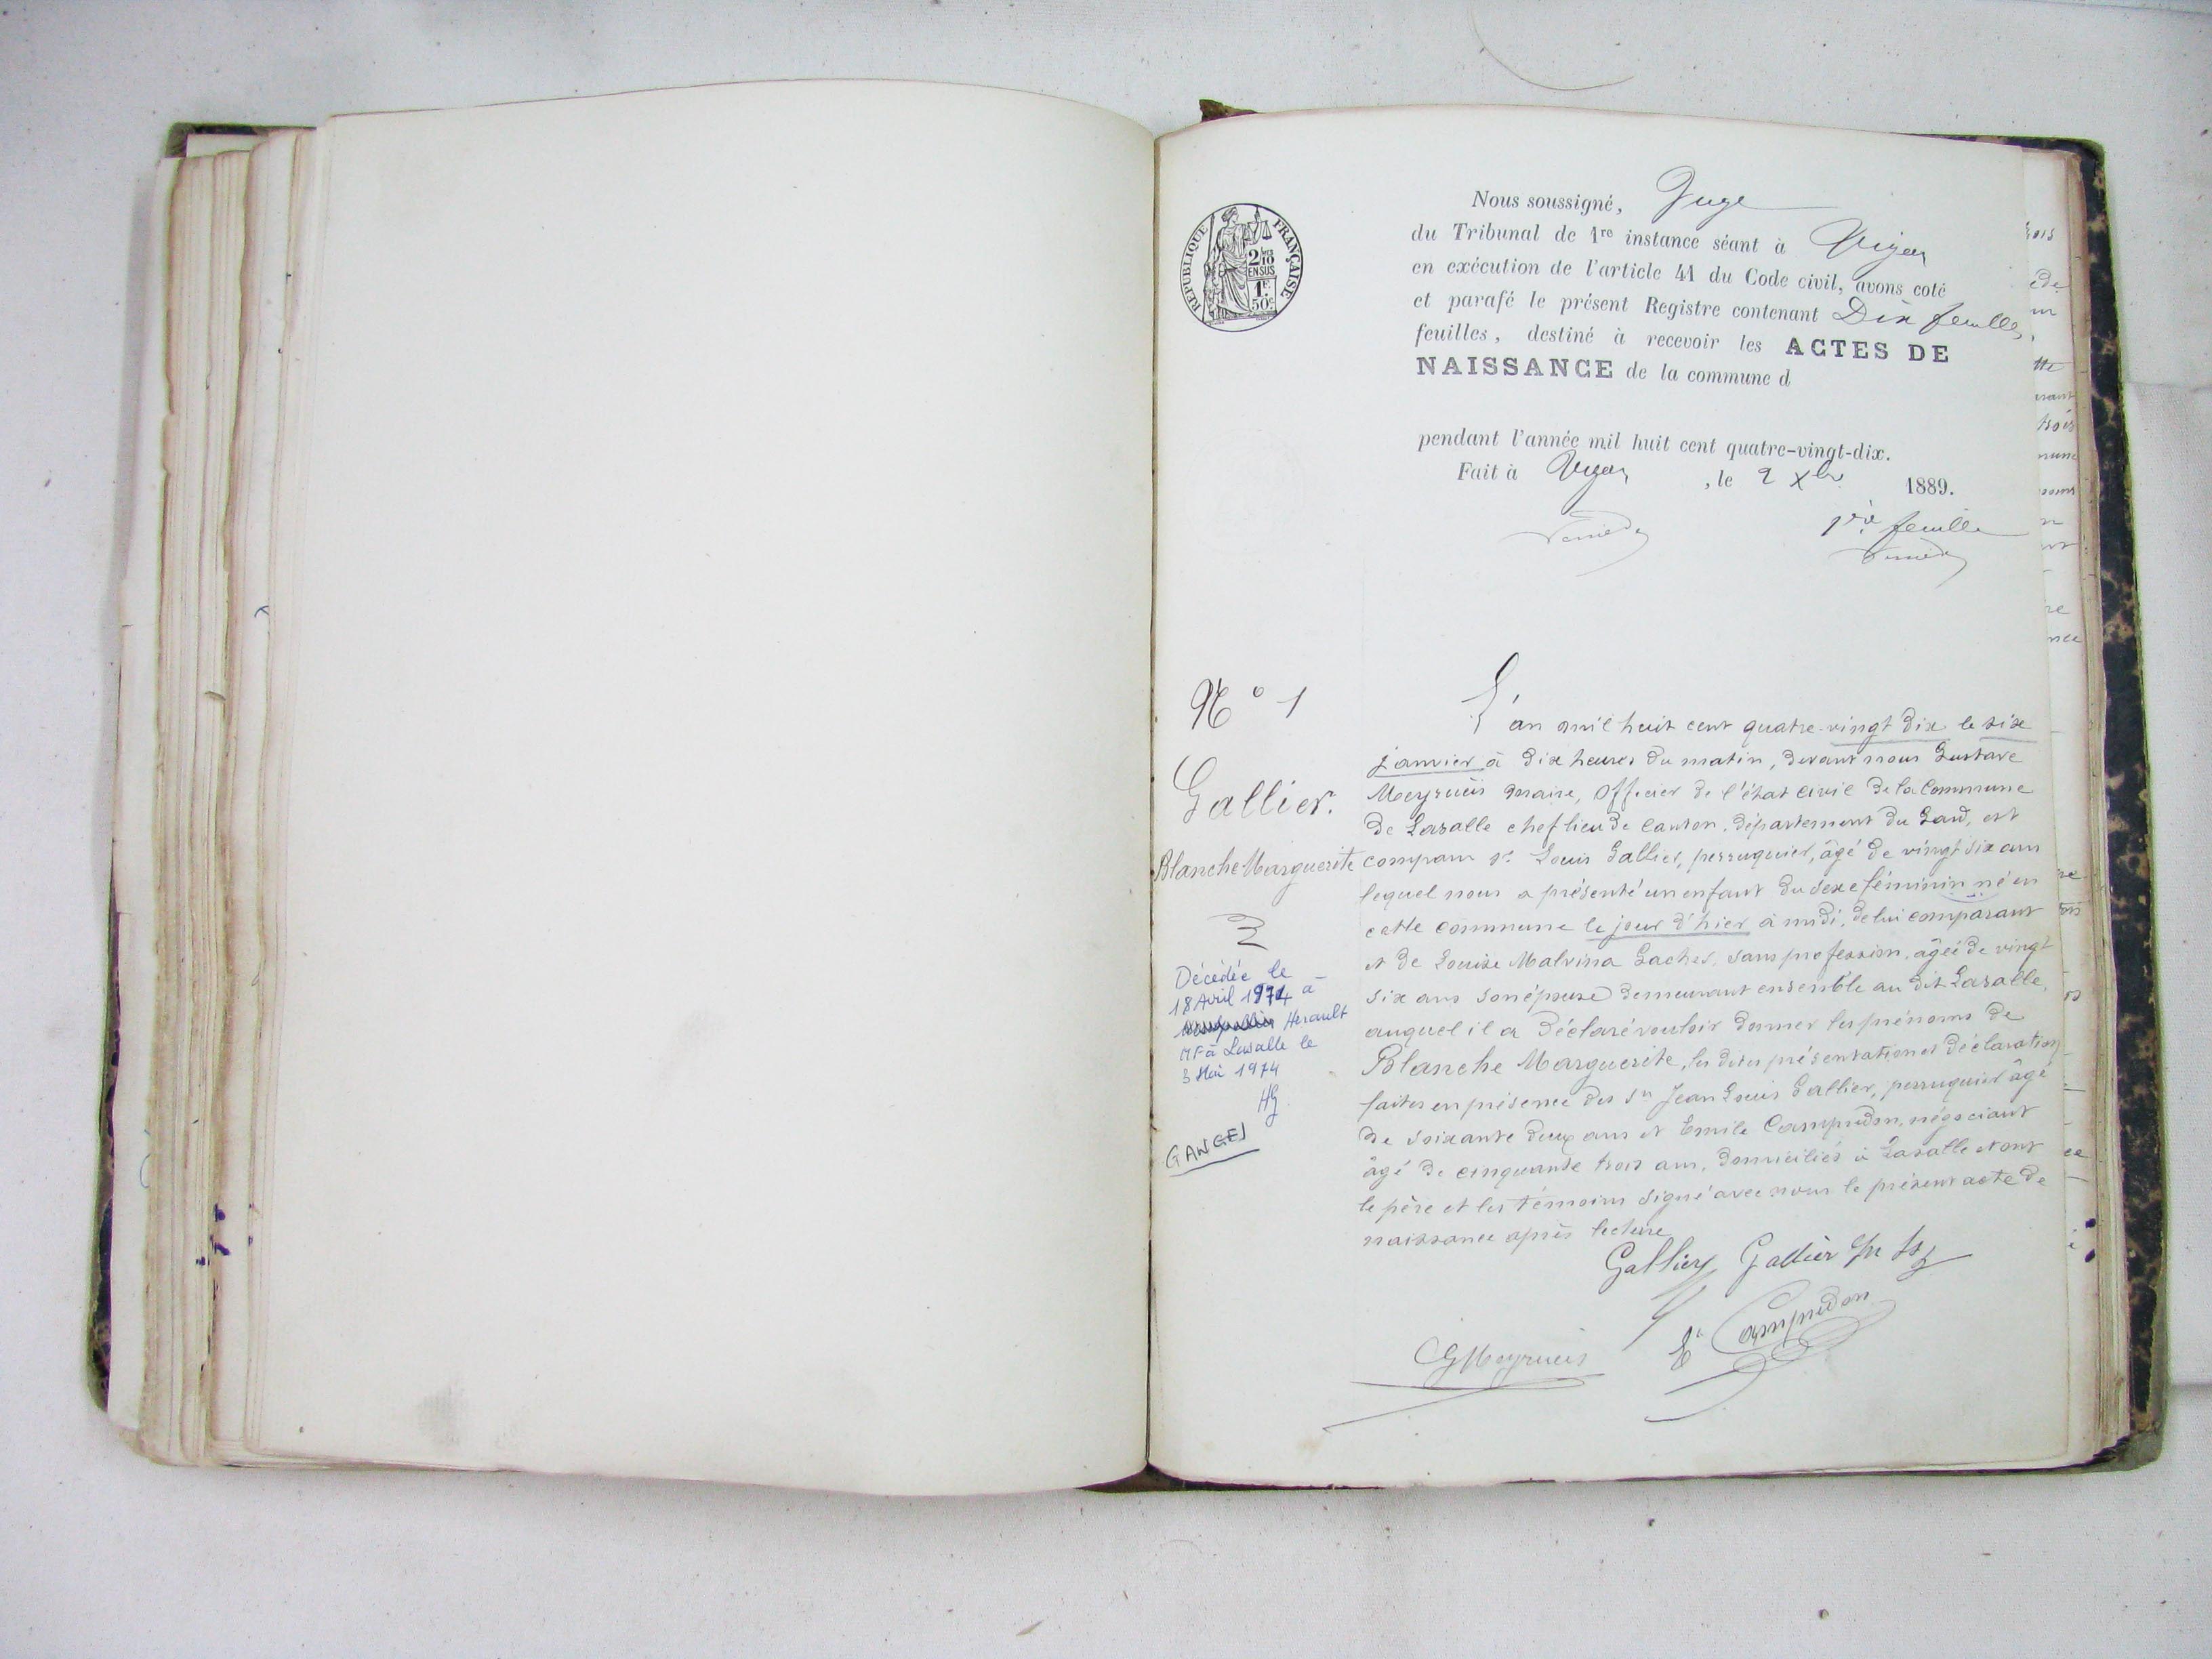 RÉPUBLIQUE FRANÇAISE
2/10
EN SUS
1F.
50c.
Nous soussigné, Juge
du Tribunal de 1re instance séant à Vigan
en exécution de l'article 41 du Code civil, avons coté
et parafé le présent Registre contenant Dix feuilles
feuilles, destiné à recevoir les ACTES DE
NAISSANCE de la commune d
pendant l'année mil huit cent quatre-vingt-dix.
Fait à Vigan, le 2 Xbre 1889.
1ère feuille
N° 1
Gallier.
Blanche Marguerite
Décédée le
18 Avril 1974 à
Herault
MF à Lasalle le
3 Mai 1974
HG
GANGES
L'an mil huit cent quatre-vingt dix le six
janvier à dix heures du matin, devant nous Gustave
Meyrueis maire, officier de l'état civil de la Commune
de Lasalle chef lieu de Canton, département du Gard, est
comparu sr Louis Gallier, perruquier, âgé de vingt six ans
lequel nous a présenté un enfant du sexe féminin né en
cette commune le jour d'hier à midi, de lui comparant
et de Louise Malvina Gaches, sans profession, âgée de vingt
six ans son épouse demeurant ensemble au dit Lasalle,
auquel il a déclaré vouloir donner les prénoms de
Blanche Marguerite, les dites présentation et déclaration
faites en présence des srs Jean Louis Gallier, perruquier âgé
de soixante deux ans et Emile Campredon, négociant
âgé de cinquante trois ans, domiciliés à Lasalle et ont
le père et les témoins signé avec nous le présent acte de
naissance après lecture
Gallier Gallier
G Meyrueis
Ee Campredon